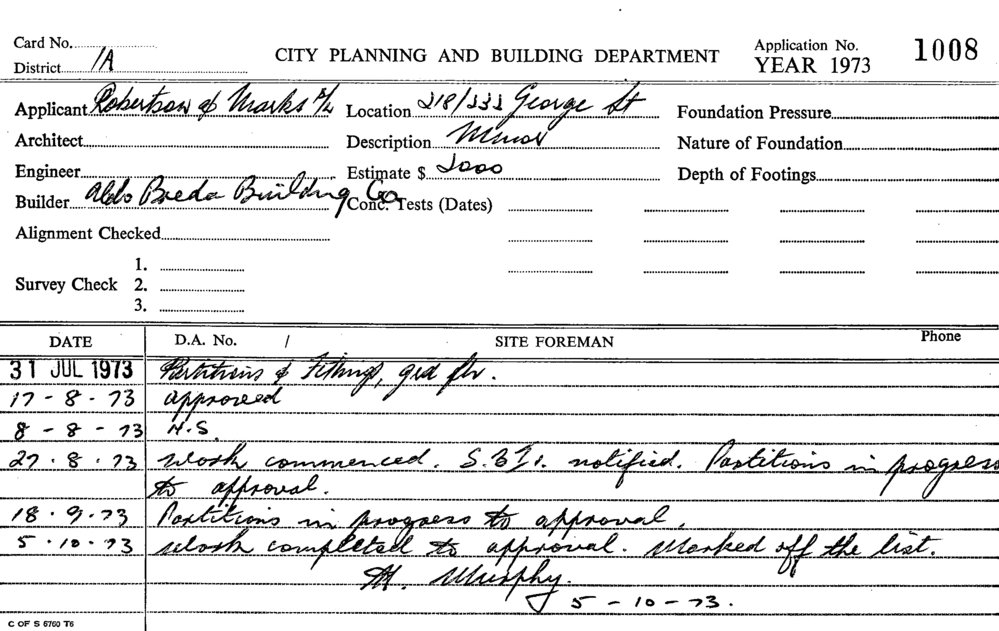 Card No.
District 1A
CITY PLANNING AND BUILDING DEPARTMENT
Application No. 1008
YEAR 1973
Applicant Robertson & Marks P/L Location 218/222 George St Foundation Pressure
Architect Description Minor Nature of Foundation
Engineer Estimate $ 2000 Depth of Footings
Builder Aldo Breda Building Co Conc. Tests (Dates)
Alignment Checked
1.
Survey Check 2.
3.
DATE D.A. No. / SITE FOREMAN Phone
31 JUL 1973 Partitions & Fittings, grd flr.
17-8-73 approved
8-8-73 N.S.
27.8.73 Work commenced. notified. Partitions in progress
to approval.
18.9.73 Partitions in progress to approval.
5.10.73 Work completed to approval. Marked off the list.
M. Murphy.
5-10-73.
C OF S 6760 T6